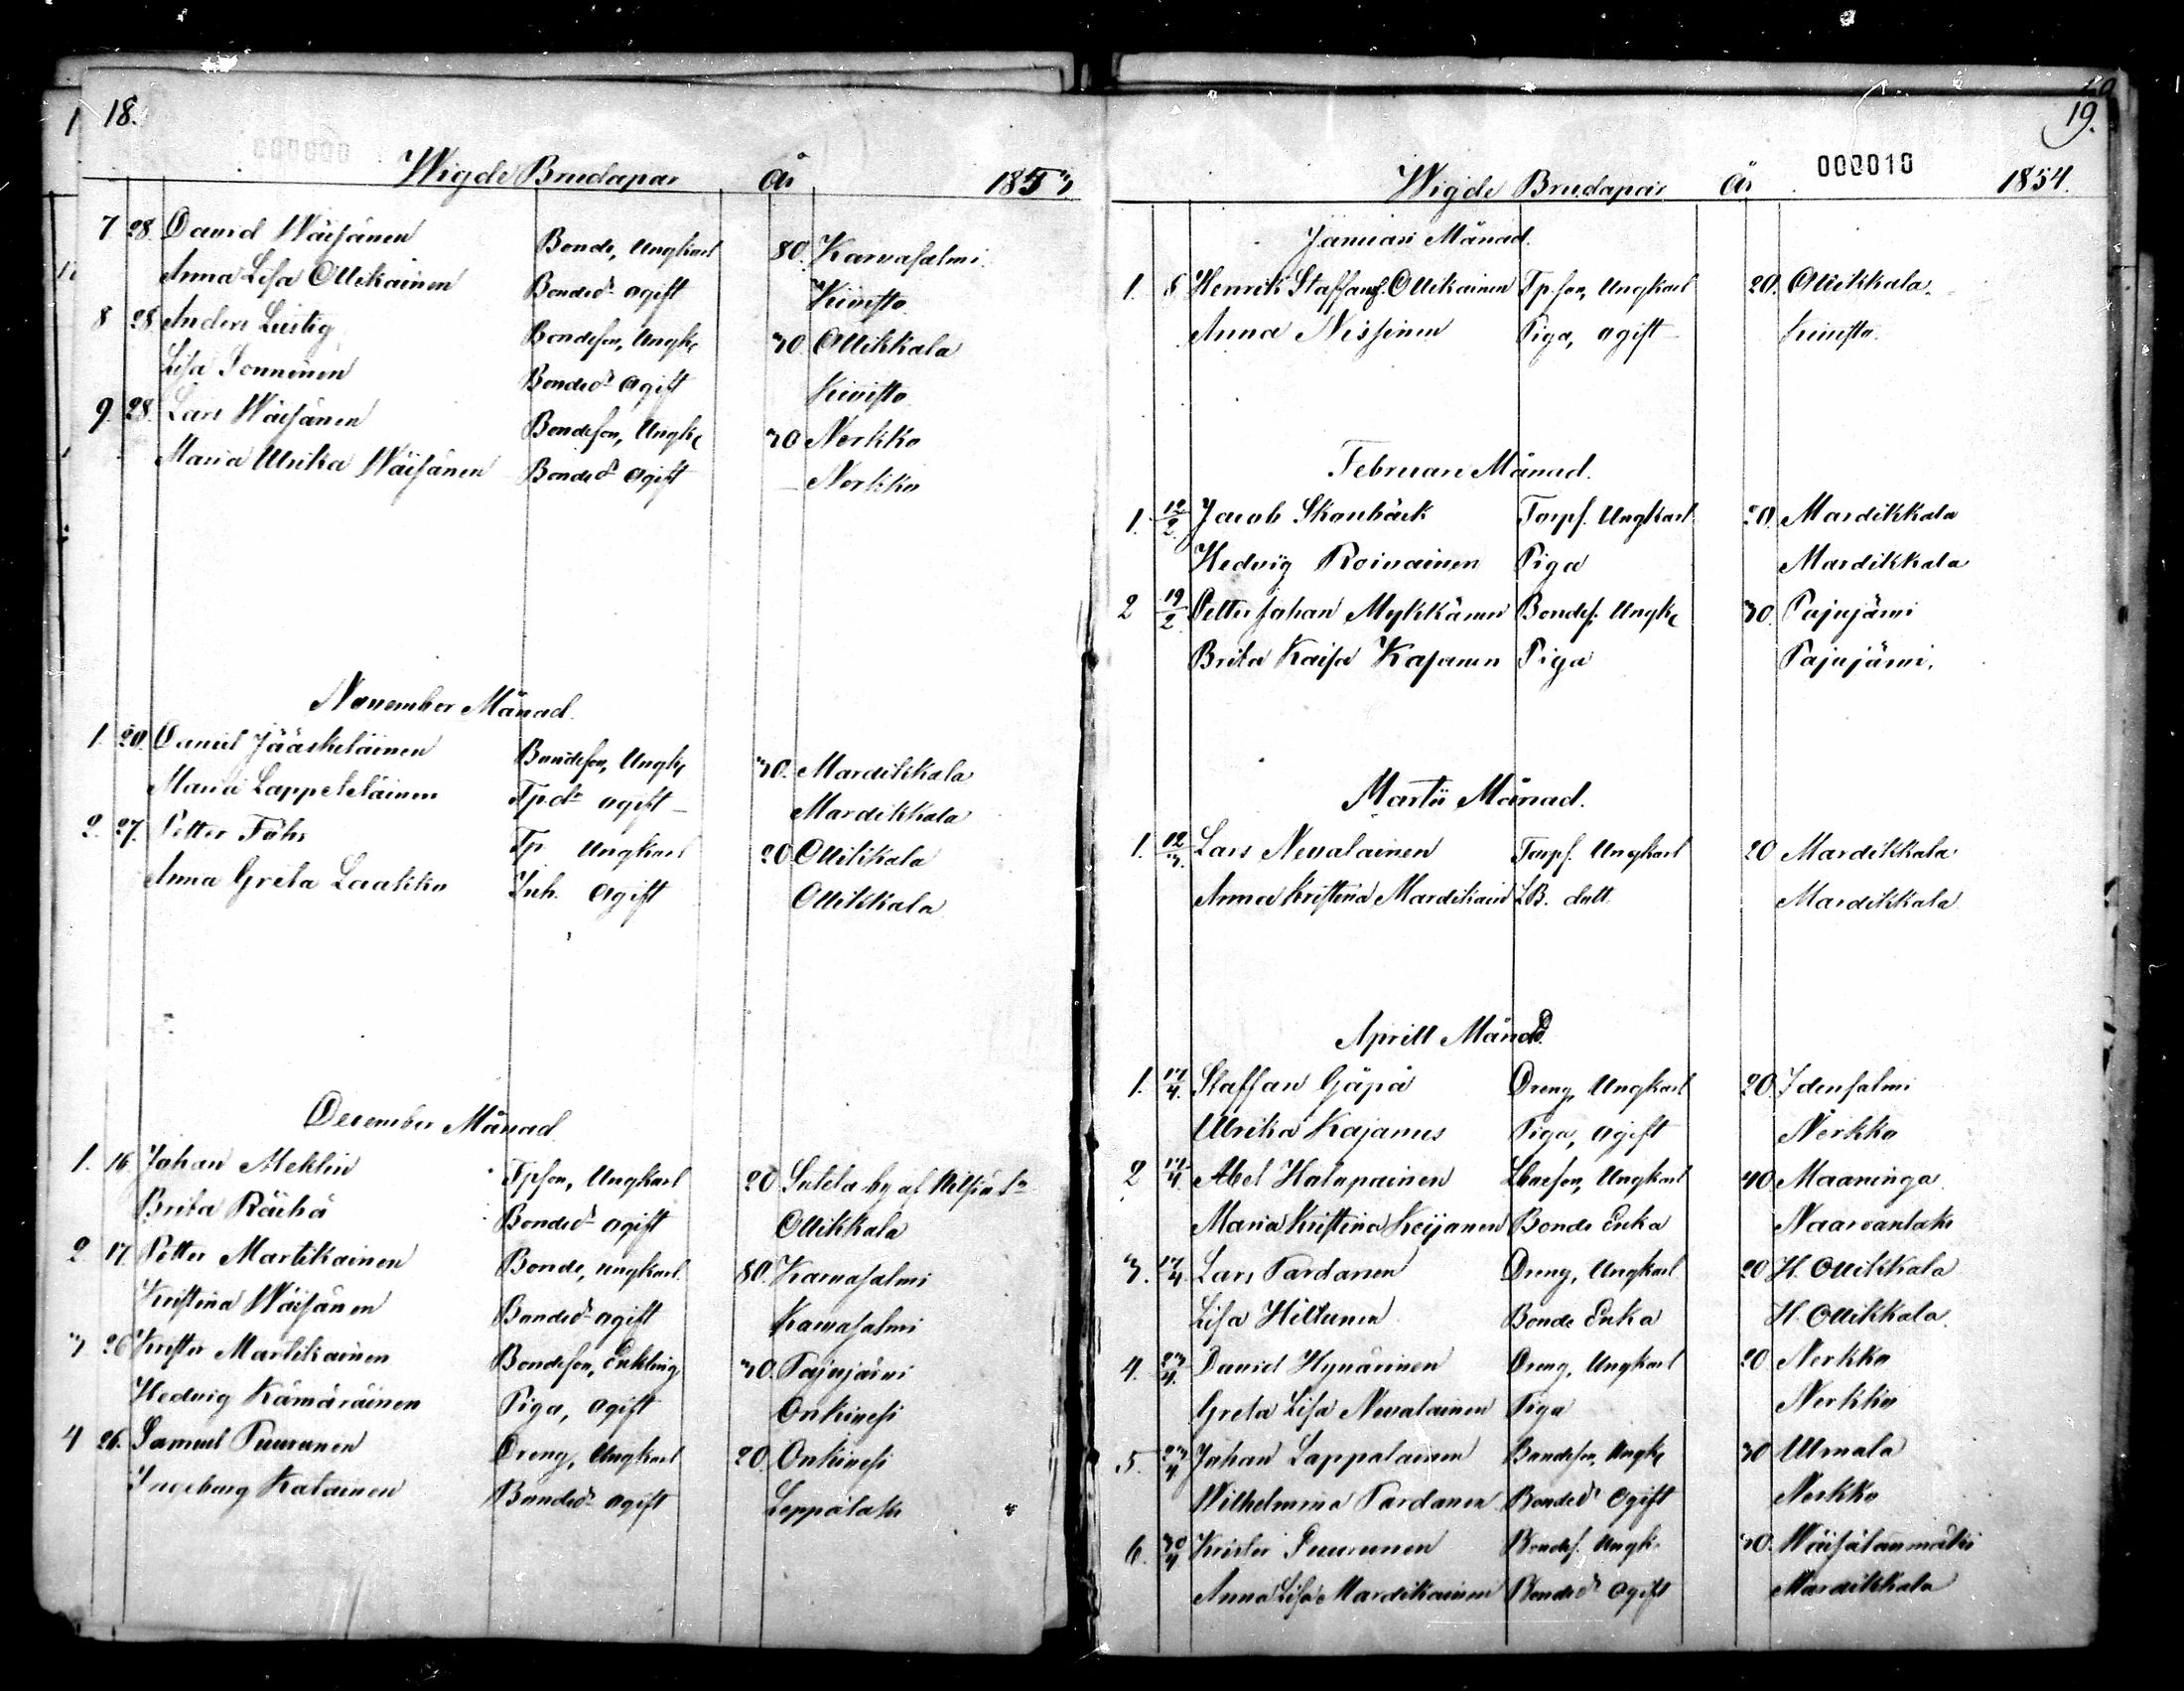 18.
Wigde Brudapar År 1853
7 28. David Wäisänen Bonde, Ungkarl 80. Karvasalmi
Anna Lisa Ollikainen Bonded:r ogift Kivistö
8 28 Anders Lustig Bondeson, Ungk. 30 Ollikkala
Lisa Sonninen Bonded:r ogift Kivistö
9. 28. Lars Wäisänen Bondeson, Ungk. 30 Nerkko
Maria Ulrika Wäisänen Bonded:r ogift Nerkko
November Månad.
1. 20. Daniel Jääskeläinen Bondeson, Ungk. 30. Mardikkala
Maria Lappeteläinen Tpd:r ogift Mardikkala
2. 27. Petter Fähr Tp. Ungkarl 20 Ollikkala
Anna Greta Laakko Inh. ogift Ollikkala
December Månad
1. 16 Johan Meklin Tpson, Ungkarl 20 Sutela by af
Brita Räihä Bonded:r ogift Ollikkala
2 17 Petter Martikainen Bonde, ungkarl. 80. Karvasalmi
Kristina Wäisänen Bonded:r ogift Karvasalmi
3 26 Krister Martikainen Bondeson, Enkling 30. Pajujärvi
Hedvig Kämäräinen Piga, ogift Onkivesi
4 26. Samuel Puurunen Dreng, Ungkarl 20. Onkivesi
Ingeborg Katainen Bonded:r ogift Leppälaks
19.
000010
Wigde Brudapar År 1854.
Januari Månad.
1. 8 Henrik Staffansf. Ollikainen Tp.son, Ungkarl 20. Ollikkala
Anna Nissinen Piga, ogift Kivistö
Februari Månad.
1. 12/2. Jacob Skonbäck Torpf. Ungkarl 20. Mardikkala
Hedvig Roivainen Piga Mardikkala
2 19/2. Petter Johan Mykkänen Bondes. Ungk. 30. Pajujärvi
Brita Kaisa Kasanen Piga Pajujärvi.
Martii Månad.
1. 12/3. Lars Nevalainen Torpf. Ungkarl 20 Mardikkala
Anna Kristina Mardikain LB. dott. Mardikkala
Aprill Månad.
1. 17/4. Staffan Gäpä Dreng, Ungkarl 20. Idensalmi
Ulrika Kajanus Piga, ogift Nerkko
2 17/4. Abel Halapainen Lboeson, Ungkarl 40 Maaninga
Maria Kristina Keijonen Bonde Enka Naarvanlaks
3. 17/4. Lars Pardanen Dreng, Ungkarl 20 H. Ollikkala
Lisa Hiltunen Bonde Enka H. Ollikkala.
4. 23/4. David Hynärinen Dreng, Ungkarl 20 Nerkko
Greta Lisa Nevalainen Piga Nerkko
5. 23/4 Johan Lappalainen Bondeson, Ungk. 30 Ulmala
Wilhelmina Pardanen Bonded:r Ogift Nerkko
6. 30/4 Krister Puurunen Bondes. Ungk. 30. Wäisälänmäki
Anna Lisa Mardikainen Bonded:r Ogift Mardikkala